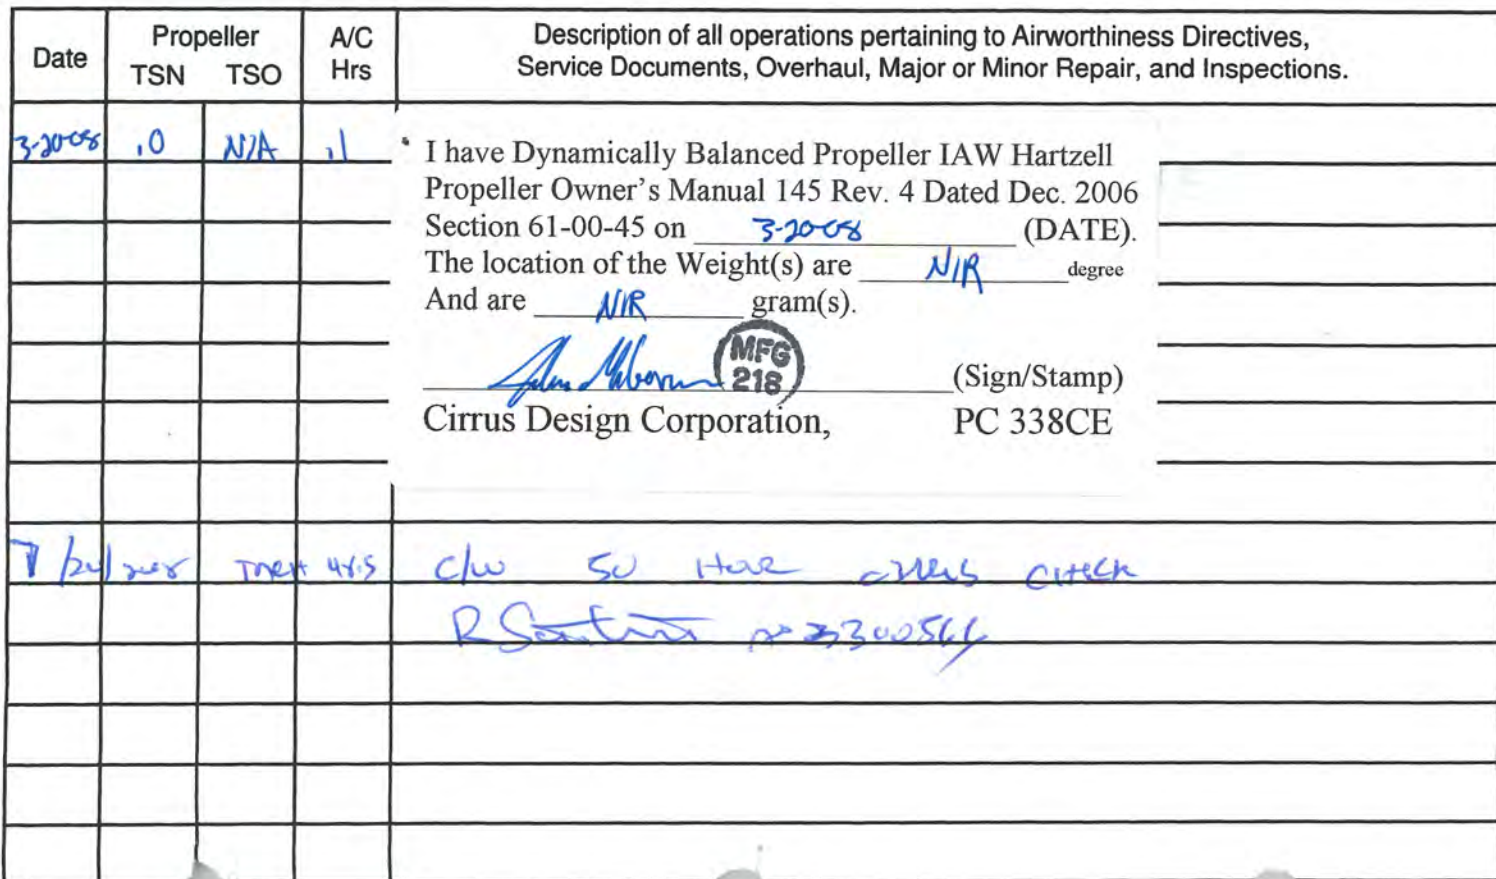 Date
Propeller
TSN TSO
A/C
Hrs
Description of all operations pertaining to Airworthiness Directives,
Service Documents, Overhaul, Major or Minor Repair, and Inspections.
3-20-08 .0 N/A .1
I have Dynamically Balanced Propeller IAW Hartzell
Propeller Owner's Manual 145 Rev. 4 Dated Dec. 2006
Section 61-00-45 on 3-20-08 (DATE).
The location of the Weight(s) are N/R degree
And are N/R gram(s).
MFG
218
(Sign/Stamp)
Cirrus Design Corporation, PC 338CE
C/W 50 CHECK
R